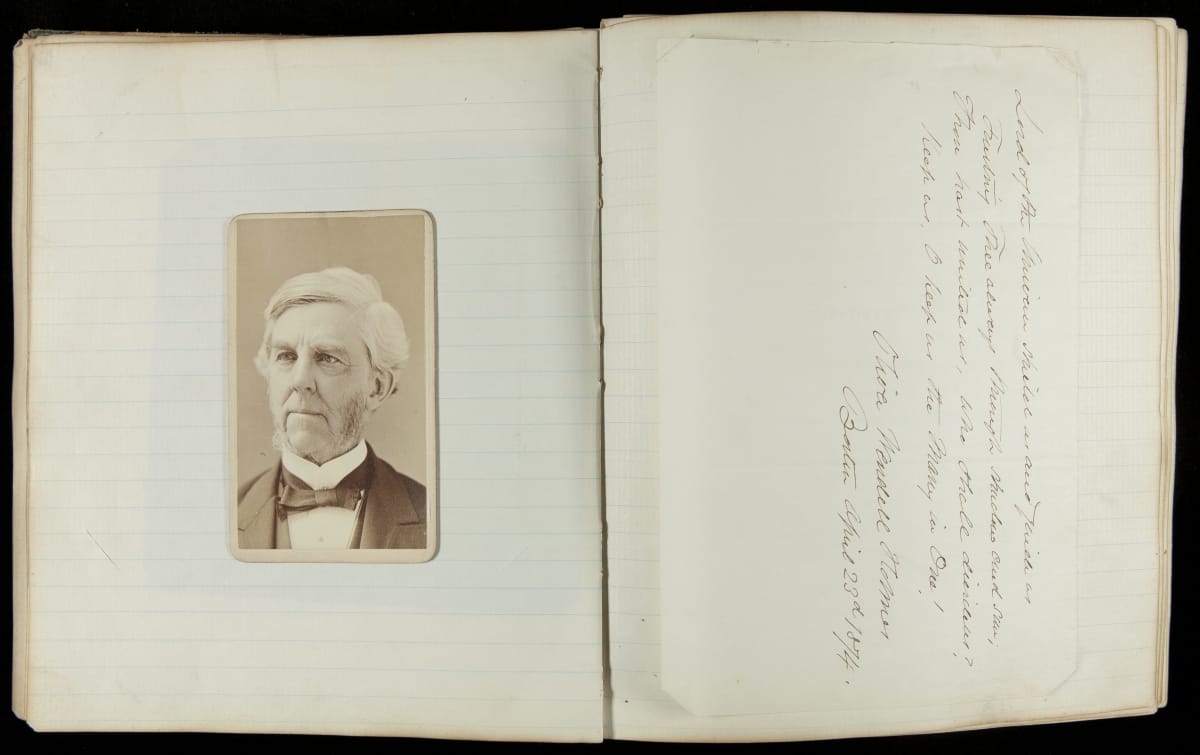 Lord of the Universe shield us and guide us
Trusting Thee always through shadow and sun;
Thou hast united us, who shall divide us?
Keep us, O keep us the Many in One!
Oliver Wendell Holmes
Boston April 23d 1874.